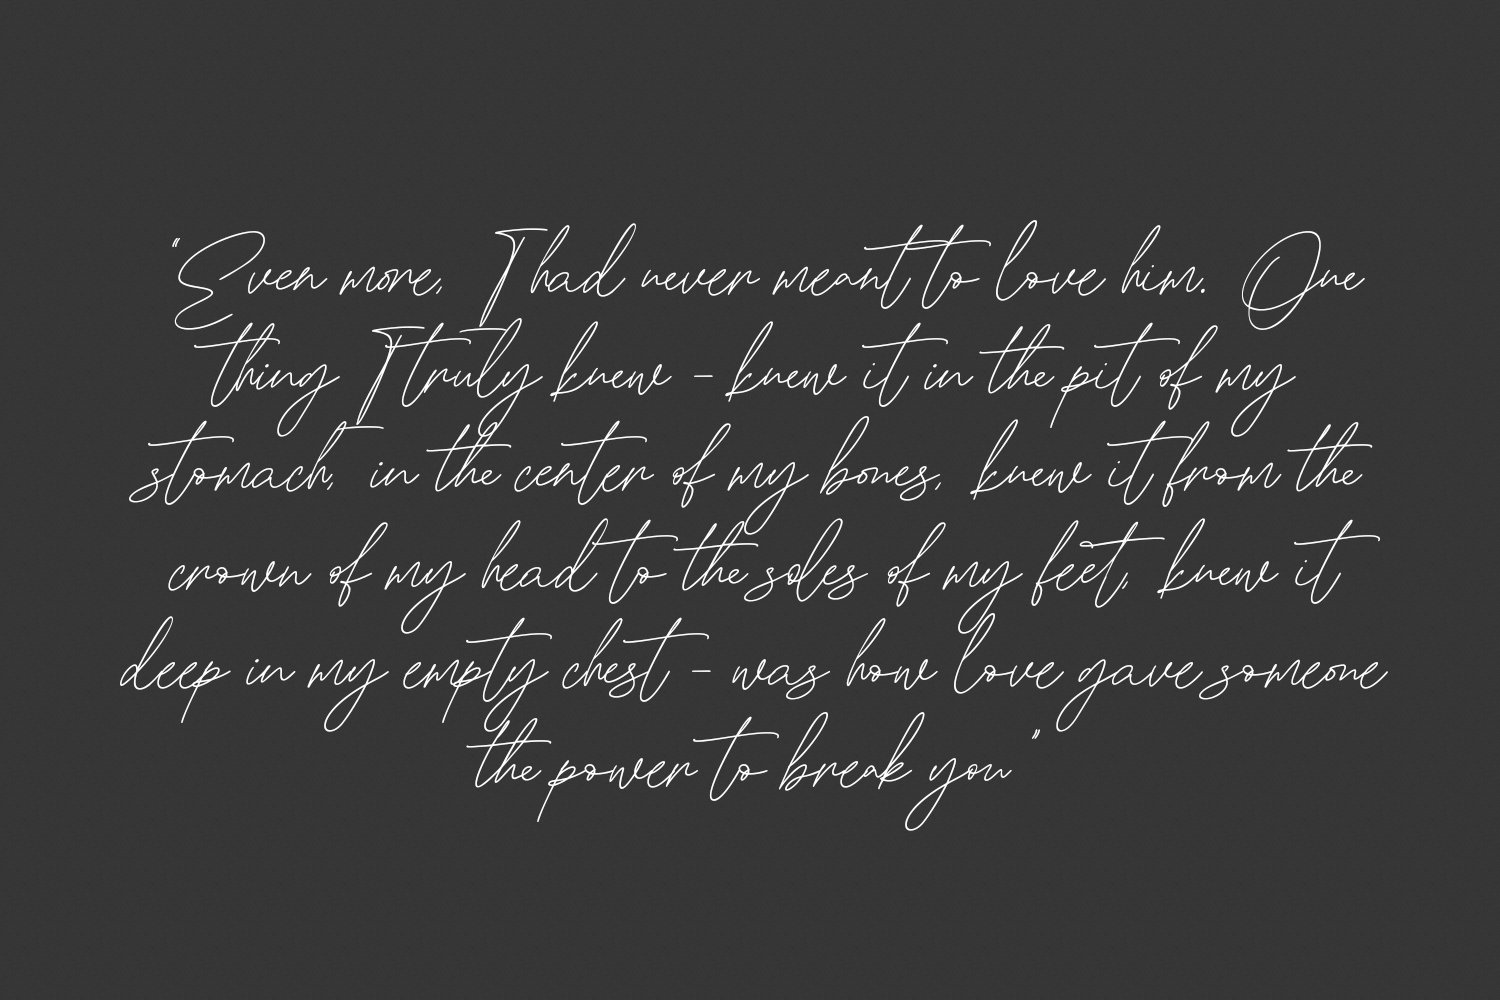 "Even more, I had never meant to love him. One
thing I truly knew - knew it in the pit of my
stomach, in the center of my bones, knew it from the
crown of my head to the soles of my feet, knew it
deep in my empty chest - was how love gave someone
the power to break you"